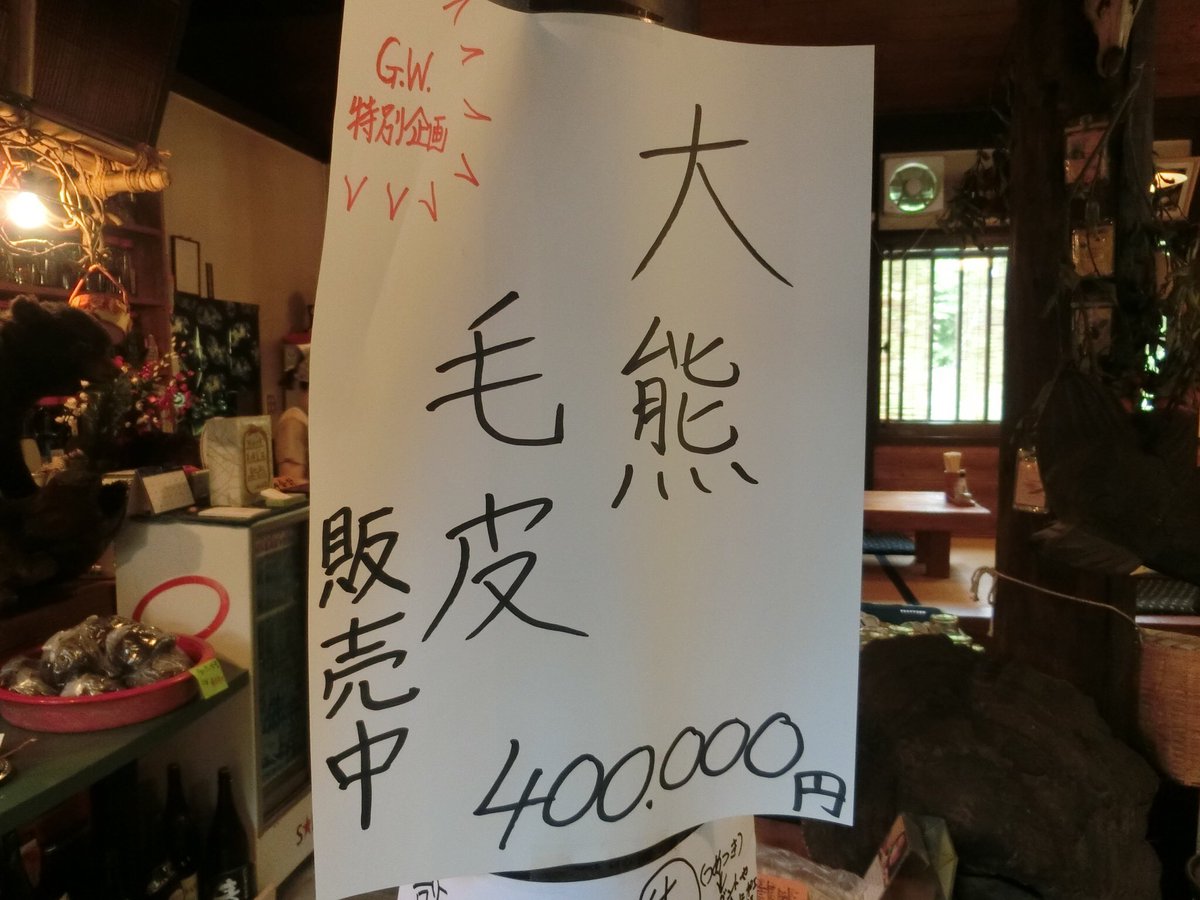 G.W.
特別企画
大熊
毛皮
販売中
400.000円
(つめつき)